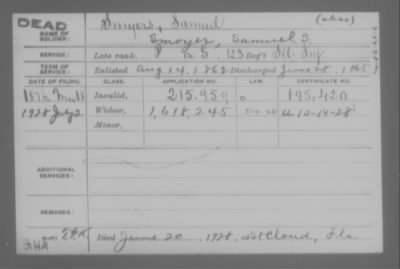 DEAD
NAME OF SOLDIER: Smyers, Samuel (alias)
Smoyer, Samuel S.
SERVICE: Late rank, P Co. G, 123 Reg't Ill. Inf
TERM OF SERVICE: Enlisted Aug 14, 1862 Discharged June 28, 1865
DATE OF FILING. CLASS. APPLICATION NO. LAW. CERTIFICATE NO.
1876 May 18 Invalid, 215,959 195,420
1928 July 2 Widow, 1,618,245 A 10-19-28
Minor,
ADDITIONAL SERVICES:
REMARKS:
Died June 20, 1928, at St Cloud, Fla.